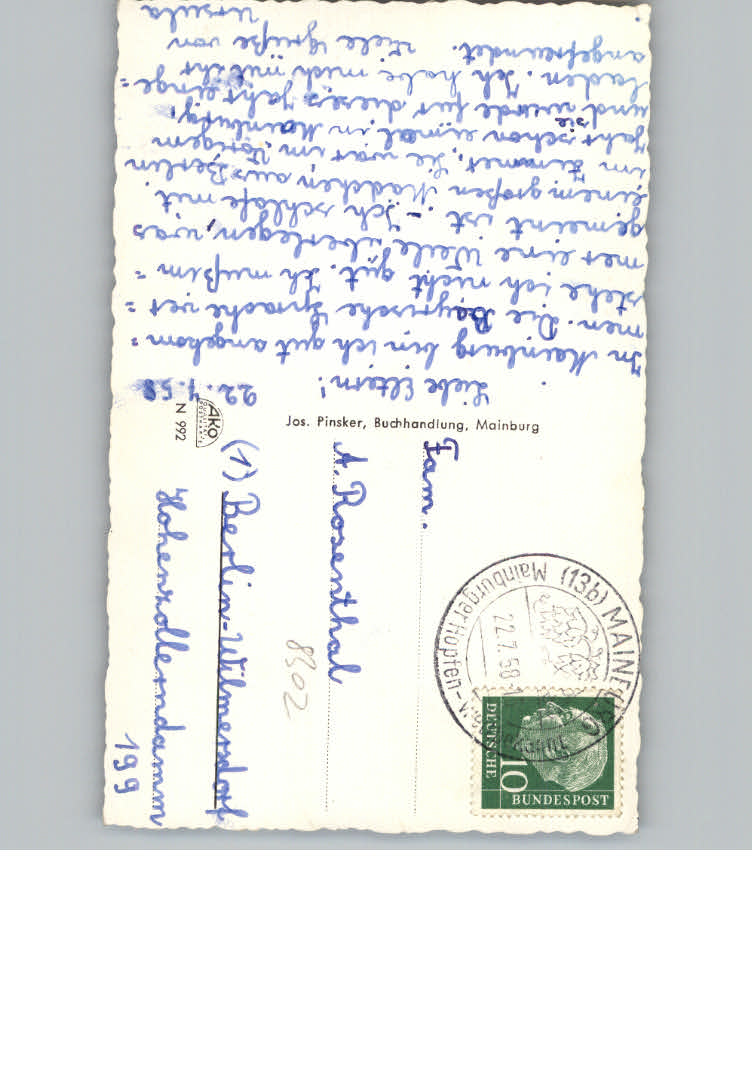 22.7.58
Liebe Eltern!
In Mainburg bin ich gut angekom=
men. Die Bayrische Sprache ver=
stehe ich nicht gut. Ich muß im=
mer eine Weile überlegen, was
gemeint ist. – Ich schlafe mit
einem großen Mädchen aus Berlin
im Zimmer. Sie war im vorigem
Jahr schon einmal in Mainburg,
und wurde für dieses Jahr einge=
sie
laden. Ich habe mich mit ihr
angefreundet. Viele Grüße von
Ursula
Jos. Pinsker, Buchhandlung, Mainburg
AKO
N 992
Fam.
A. Rosenthal
(1) Berlin-Wilmersdorf
Hohenzollerndamm
199
8302
(13b) MAINBURG
Mainburger Hopfen
22.7.58
DEUTSCHE
BUNDESPOST
10